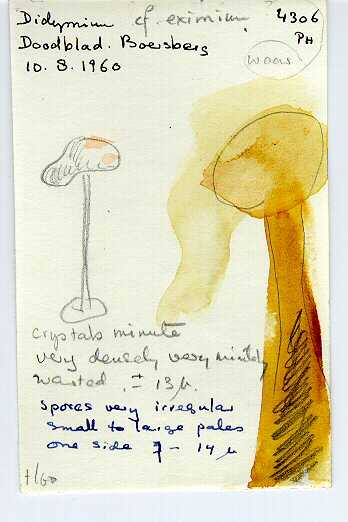 Didymium cf. eximium 4306
Doodblad. Boersberg PH
10.8.1960
crystals minute
very densely very minutely
warted, ± 13 µ.
spores very irregular
small to large pale
one side 7 – 14 µ